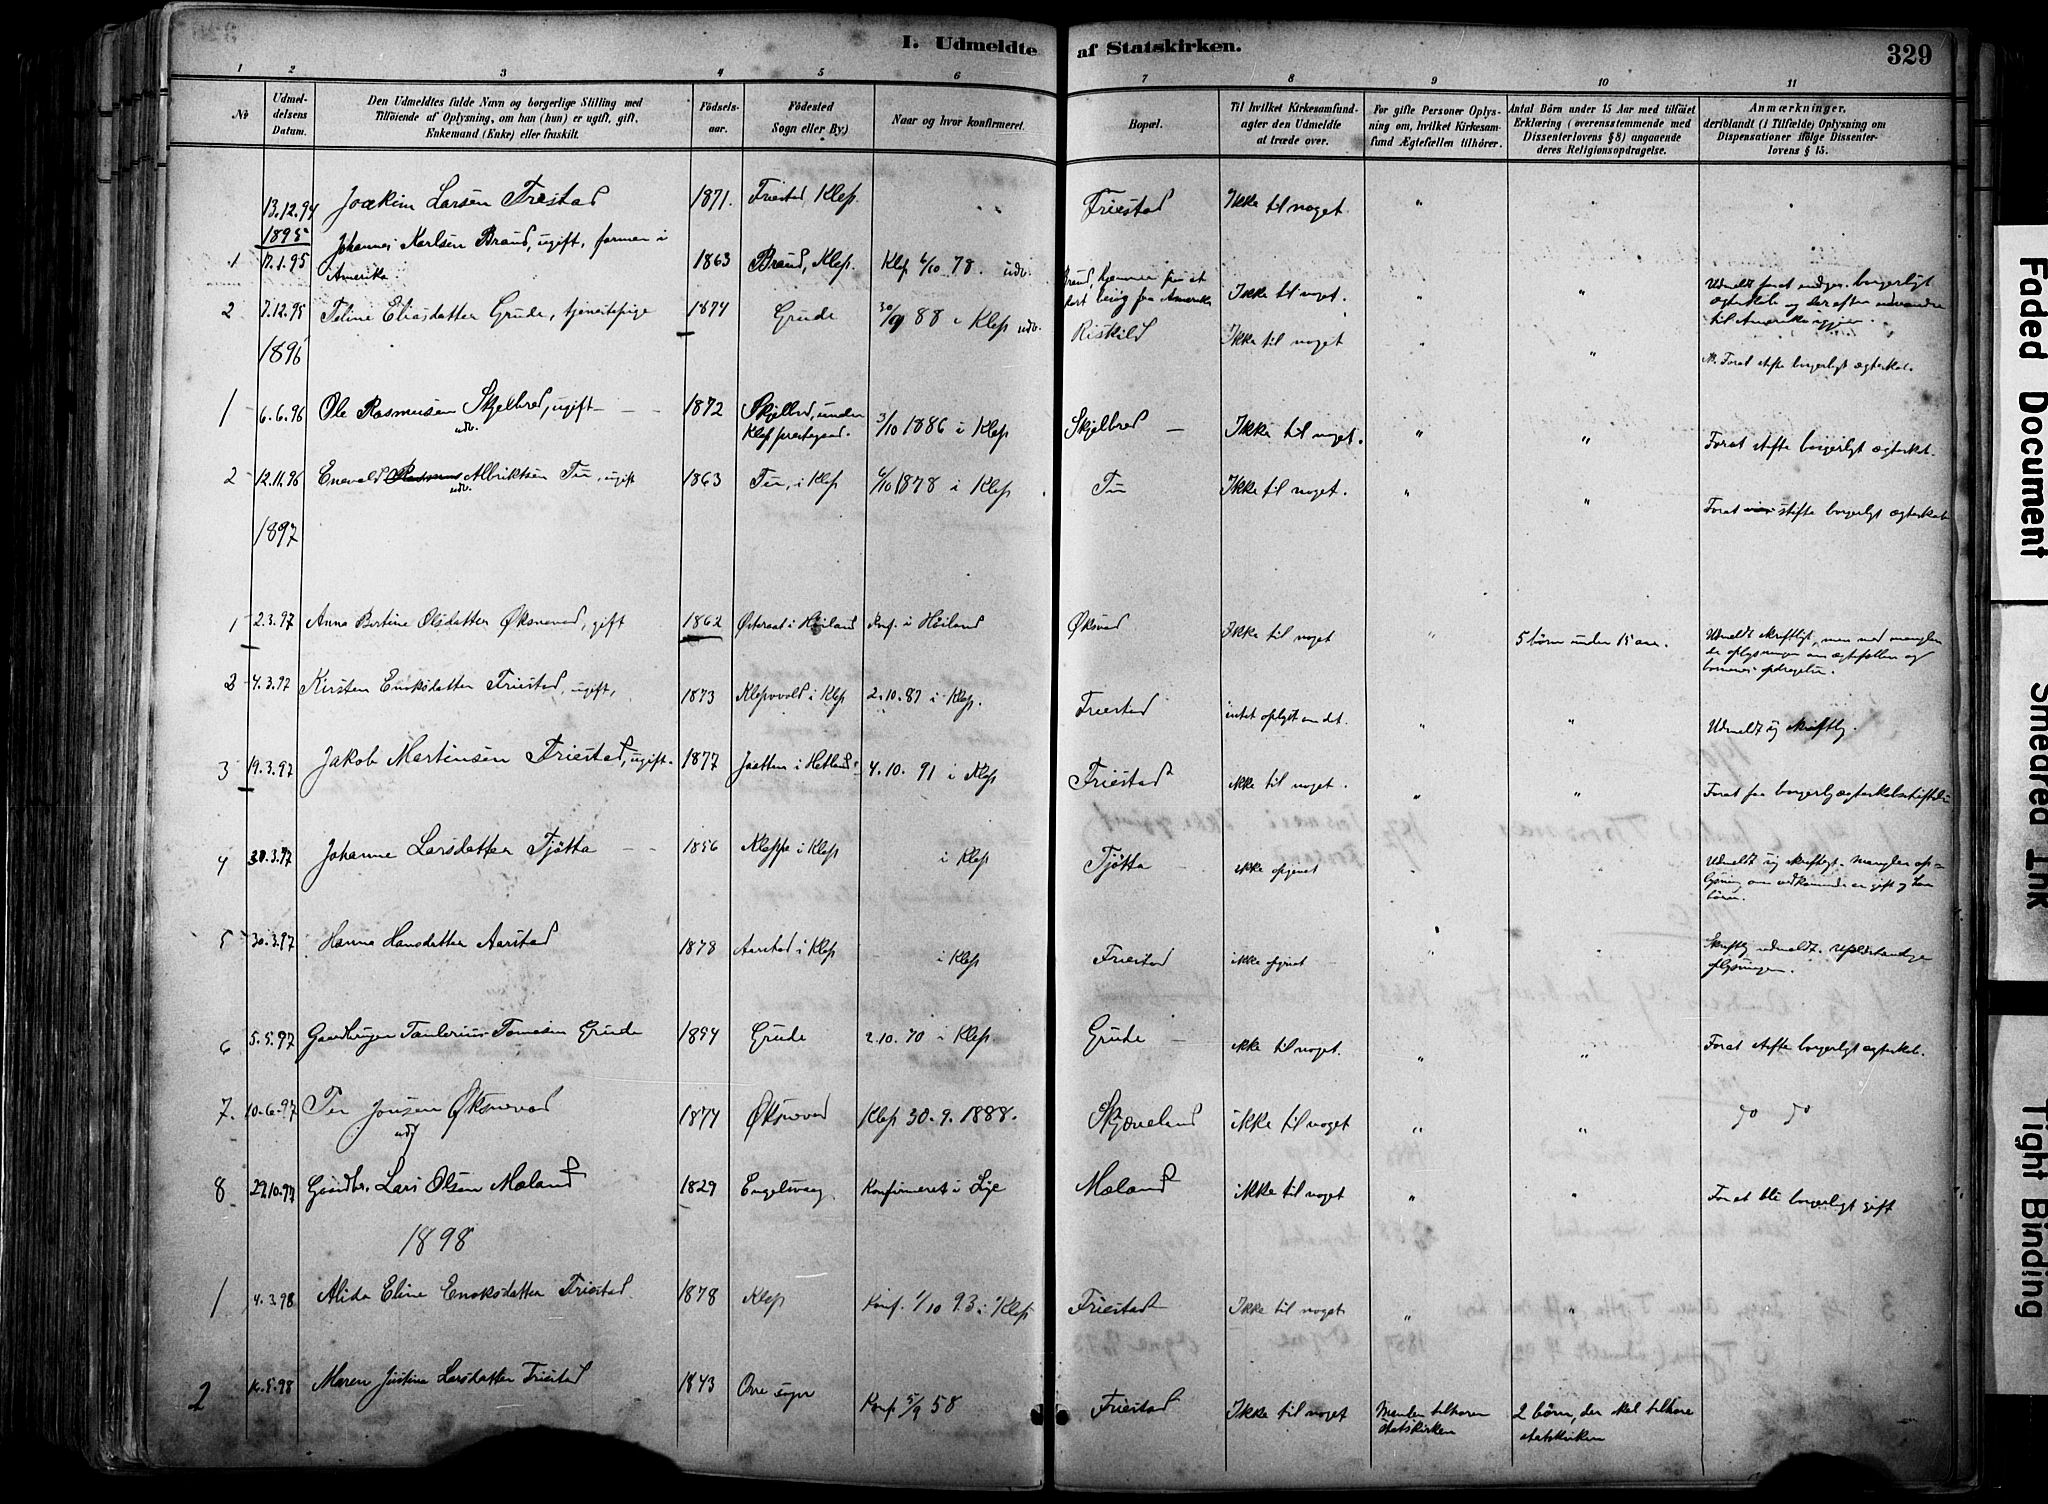 I. Udmeldte af Statskirken.
329
1 2 3 4 5 6 7 8 9 10 11
No
Udmel-
delsens
Datum.
Den Udmeldtes fulde Navn og borgerlige Stilling med
Tilføiende af Oplysning, om han (hun) er ugift, gift,
Enkemand (Enke) eller fraskilt.
Fødsels-
aar.
Fødested
Sogn eller By.)
Naar og hvor konfirmeret.
Bopæl.
Til hvilket Kirkesamfund-
agter den Udmeldte
at træde over.
For gifte Personer Oplys-
ning om, hvilket Kirkesam-
fund Ægtefællen tilhører.
Antal Børn under 15 Aar med tilføiet
Erklæring (overensstemmende med
Dissenterlovens § 8) angaaende
deres Religionsopdragelse.
Anmærkninger,
deriblandt (i Tilfælde) Oplysning om
Dispensationer ifølge Dissenter-
lovens § 15.
13.12.94 Joakim Larsen Friestad 1871. Friestad, Klep. Friestad Ikke til noget. "
1895
1 17.1.95 Johannes Karlsen Braud, ugift, farmer i
Amerika. 1863 Braud, Klep. Klep 6/10 78. udv. Ikke til noget. " "
2 7.12.95 Teline Eliasdatter Grude, tjenestepige 1874 Grude 30/9 88 i Klep udv. Riskild Ikke til noget " "
til Amerika igjen.
Forat stifte borgerligt ægteskab.
1896
1 6.6.96 Ole Rasmusen Skjelbred, ugift 1872 Skjelbred, under
Klep prestegaard. 3/10 1886 i Klep Skjelbred Ikke til noget. " " Forat stifte borgerligt ægteskab.
udv.
2 12.11.96 Enevald Albriktsen Tu, ugift 1863 Tu, i Klep 6/10 1878 i Klep Tu Ikke til noget. " " Forat stifte borgerligt ægteskab
udv.
1897
1 2.3.97 Anna Bertine Olsdatter Øksnevad, gift 1862 Østeraat i Høiland Konf. i Høiland Øksevad Ikke til noget " 5 børn under 15 aar. Udmeldt skriftligt, men med manglen
de oplysninger om ægtefællen og
børnenes opdragelse.
2 4.3.97 Kirsten Enoksdatter Friestad, ugift, 1873 Kleppvold i Klep 2.10.87 i Klep. Friestad intet oplyst om det. " " Udmeldt sig skriftlig.
3 19.3.97 Jakob Martinsen Friestad, ugift. 1877 Jaatten i Hetland 4.10.91 i Klep Friestad ikke til noget. " " Forat faa borgerlig ægteskabsstiftelse
4 30.3.97 Johanne Larsdatter Tjøtta 1856 Kleppe i Klep i Klep Tjøtta ikke opgivet " Udmeldt sig skriftligt. Mangler op-
lysning om vedkommende er gift og har
børn.
5 30.3.97 Hanna Hansdatter Aarstad 1878 Aarstad i Klep i Klep Friestad ikke opgivet " Skriftlig udmeldt. Ufuldstændige
oplysninger.
6 5.5.97 Tomesen Grude Grude 2.10.70 i Klep. Grude ikke til noget. " " Forat stifte borgerligt ægteskab.
7. 10.6.97 Jonsen Øksnevad 1874 Øksnevad Klep 30.9.1888. Skjæveland ikke til noget " "
8 29.10.97 Gaardbr. Lars Olsen Mæland 1829 Engelsvaag. Konfirmeret i Lye Mæland ikke til noget " " Forat bli borgerligt gift
1898
1 4.3.98 Alida Eline Enoksdatter Friestad. 1878 Klep Konf. 1/10 93 i Klep Friestad Ikke til noget " "
2 Maren Justine Larsdatter Friestad 1843 Orre sogn Konf 5/9 58 Friestad Ikke til noget Manden tilhører
statskirken 2 børn, der skal tilhøre
statskirken
Faded Document
Smeared Ink
Tight Binding